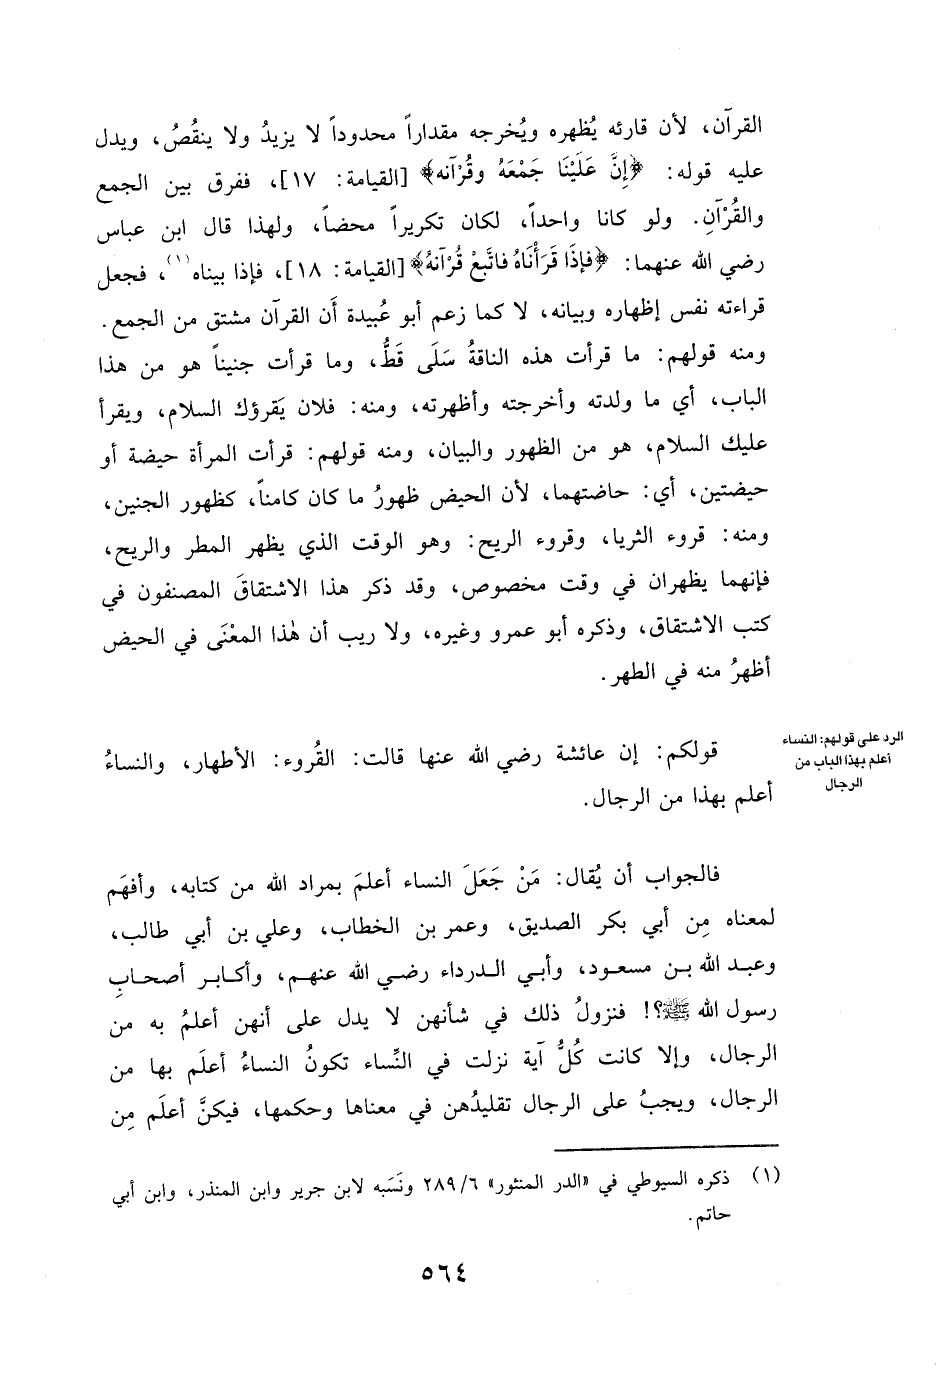 القرآن، لأن قارئه يُظهره ويُخرجه مقداراً محدوداً لا يزيدُ ولا ينقُصُ، ويدل
عليه قوله: ﴿إِنَّ عَلَيْنَا جَمْعَهُ وقُرْآنه﴾ [القيامة: ١٧]، ففرق بين الجمع
والقُرْآنِ. ولو كانا واحداً، لكان تكريراً محضاً، ولهذا قال ابن عباس
رضي الله عنهما: ﴿فإذَا قَرَأْنَاهُ فاتَّبِعْ قُرْآنَهُ﴾ [القيامة: ١٨]، فإذا بيناه(١)، فجعل
قراءته نفس إظهاره وبيانه، لا كما زعم أبو عُبيدة أَن القرآن مشتق من الجمع.
ومنه قولهم: ما قرأت هذه الناقةُ سَلَى قَطُّ، وما قرأت جنيناً هو من هذا
الباب، أي ما ولدته وأخرجته وأظهرته، ومنه: فلان يَقرؤك السلام، ويقرأ
عليك السلام، هو من الظهور والبيان، ومنه قولهم: قرأت المرأة حيضة أو
حيضتين، أي: حاضتهما، لأن الحيض ظهورُ ما كان كامناً، كظهور الجنين،
ومنه: قروء الثريا، وقروء الريح: وهو الوقت الذي يظهر المطر والريح،
فإنهما يظهران في وقت مخصوص، وقد ذكر هذا الاشتقاقَ المصنفون في
كتب الاشتقاق، وذكره أبو عمرو وغيره، ولا ريب أن هٰذا المعْنَى في الحيض
أظهرُ منه في الطهر.
الرد على قولهم: النساء
أعلم بهذا الباب من
الرجال
قولكم: إن عائشة رضي الله عنها قالت: القُروء: الأطهار، والنساءُ
أعلم بهذا من الرجال.
فالجواب أن يُقال: مَنْ جَعَلَ النساء أعلمَ بمراد الله من كتابه، وأفهَم
لمعناه مِن أبي بكر الصديق، وعمر بن الخطاب، وعلي بن أبي طالب،
وعبد الله بن مسعود، وأبي الدرداء رضي الله عنهم، وأكابر أصحابِ
رسول الله ﷺ؟! فنزولُ ذلك في شأنهن لا يدل على أنهن أعلمُ به من
الرجال، وإلا كانت كُلُّ آية نزلت في النِّساء تكونُ النساءُ أعلَم بها من
الرجال، ويجبُ على الرجال تقليدُهن في معناها وحكمها، فيكنَّ أعلَم مِن
(١) ذكره السيوطي في «الدر المنثور» ٢٨٩/٦ ونَسَبه لابن جرير وابن المنذر، وابن أبي
حاتم.
٥٦٤